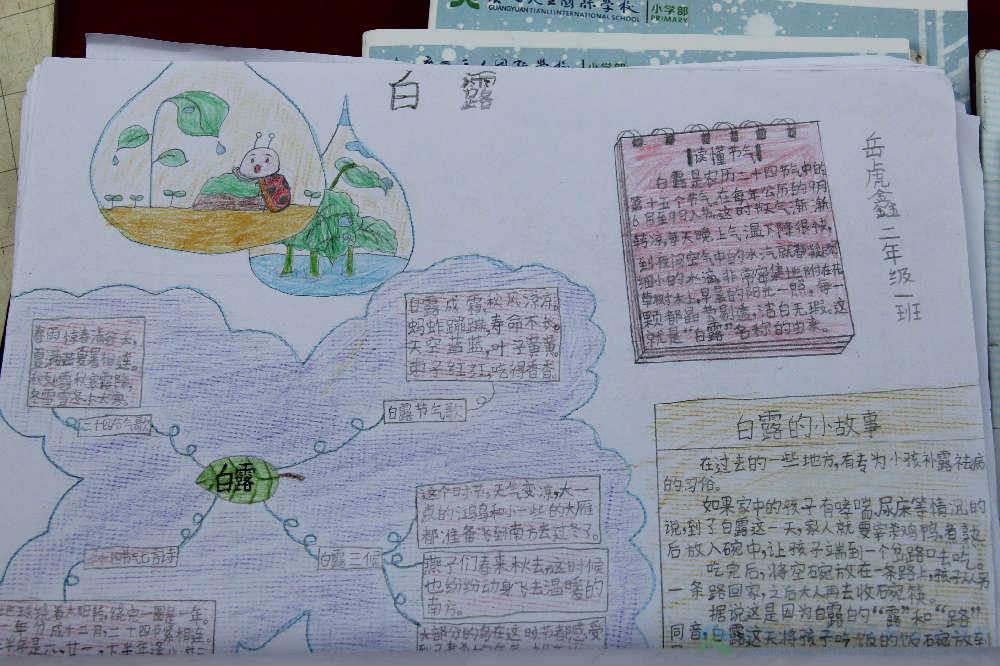 国际学校
小学部
GUANGYUAN TIANLI INTERNATIONAL SCHOOL
PRIMARY
小学部
白露
岳虎鑫二年级一班
读懂节气
白露是农历二十四节气中的
第十五个节气,在每年公历的9月
这时候天气渐渐
转凉,每天晚上气温下降很快,
到夜间空气中的水汽就都
细小的水滴,非常密集地附在花
草树木上,早晨的阳光一照,每一
颗都晶莹剔透,洁白无瑕。这
就是“白露”名称的由来。
春雨惊春清谷天,
夏满芒夏暑相连。
秋处露秋寒霜降,
冬雪雪冬小大寒。
二十四节气歌
白露成霜,秋风凉凉。
蚂蚱蹦蹦,寿命不长。
天空蓝蓝,叶子黄黄。
枣子红红,吃得香香。
白露节气歌
白露
这个时节,天气变凉,大一
点的鸿鸟和小一些的大雁
都准备飞到南方去过冬了。
白露三候
燕子们春来秋去,这时候
也纷纷动身飞去温暖的
南方。
大部分的鸟在这时节都感受
二十四节气七言诗
地球绕着太阳转,绕完一圈是一年。
年分成十二月,二十四节紧相连。
白露的小故事
在过去的一些地方,有专为小孩补露祛病
的习俗。
如果家中的孩子有哮喘,尿床等情况的
说,到了白露这一天,家人就要宰杀鸡鸭,煮熟
后放入碗中,让孩子端到一个岔路口去吃。
吃完后,将空碗放在一条路上,孩子从另
一条路回家,之后大人再去收石碗筷。
据说这是因为白露的“露”和“路”
同音,白露这天将孩子吃饭的饭石碗放到